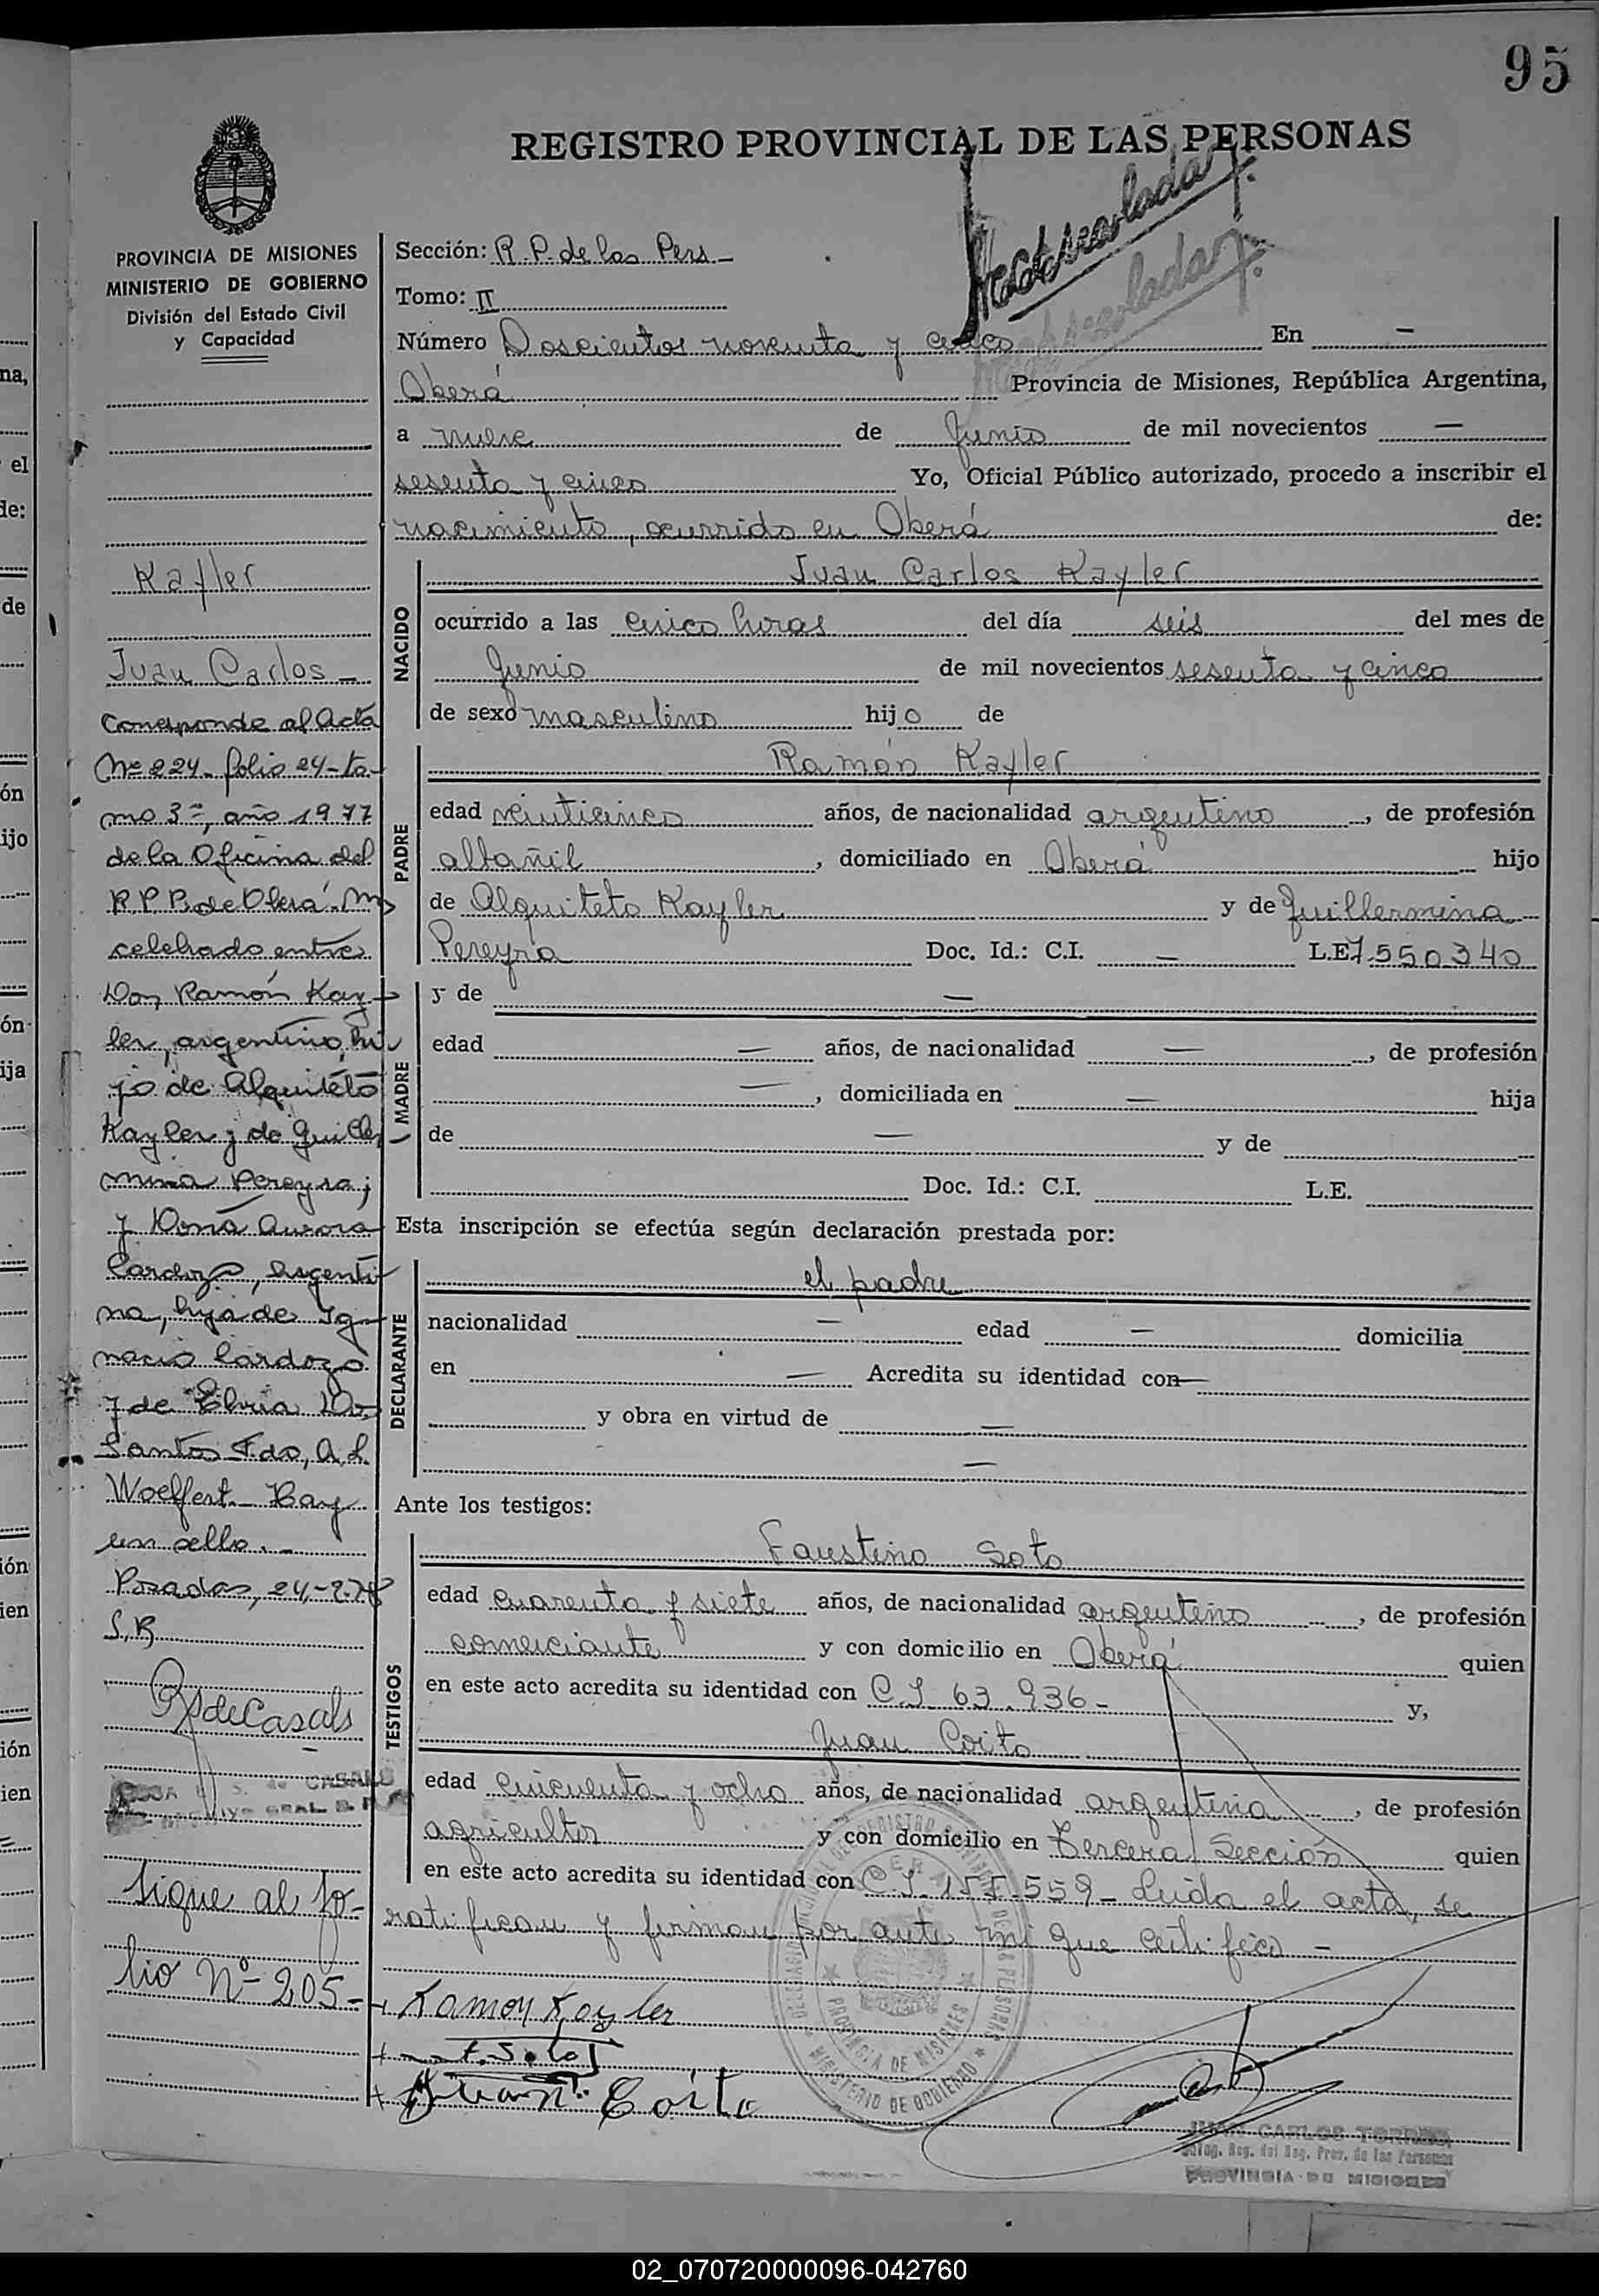 95
REGISTRO PROVINCIAL DE LAS PERSONAS
PROVINCIA DE MISIONES
MINISTERIO DE GOBIERNO
División del Estado Civil
y Capacidad
Kayler
Juan Carlos -
Corresponde al Acta
Nº 224 - folio 24 - to-
mo 3º, año 1977
de la Oficina del
R.P.P. de Oberá - Ms
celebrado entre
Don Ramón Kay-
ler, argentino, hi-
jo de Alquiteto
Kayler y de Guiller
mina Pereyra;
y Doña Aurora
Cardozo, argenti-
na, hija de Ig-
nacio Cardozo
y de Elvia Do
Santos Fdo, A.L.
Woelfert - Hay
un sello. -
Posadas, 24-2-78
S.R
de Casals
Sigue al fo-
lio Nº 205 -
Sección: R. P. de las Pers -
Tomo: II
Número Doscientos noventa y cinco En -
Oberá Provincia de Misiones, República Argentina,
a nueve de Junio de mil novecientos -
sesenta y cinco Yo, Oficial Público autorizado, procedo a inscribir el
nacimiento, ocurrido en Oberá de:
NACIDO
Juan Carlos Kayler
ocurrido a las cinco horas del día seis del mes de
Junio de mil novecientos sesenta y cinco
de sexo masculino hijo de
PADRE
Ramón Kayler
edad veinticinco años, de nacionalidad argentino, de profesión
albañil, domiciliado en Oberá hijo
de Alquiteto Kayler y de Guillermina
Pereyra Doc. Id.: C.I. - L.E 7.550340
MADRE
y de -
edad - años, de nacionalidad -, de profesión
-, domiciliada en - hija
de - y de
Doc. Id.: C.I. L.E.
Esta inscripción se efectúa según declaración prestada por:
DECLARANTE
el padre
nacionalidad - edad - domicilia
en - Acredita su identidad con -
y obra en virtud de -
-
Ante los testigos:
TESTIGOS
Faustino Soto
edad cuarenta y siete años, de nacionalidad argentino, de profesión
comerciante y con domicilio en Oberá quien
en este acto acredita su identidad con C.I 63.936 - y,
Juan Coito
edad cincuenta y ocho años, de nacionalidad argentina, de profesión
agricultor y con domicilio en Tercera Sección quien
en este acto acredita su identidad con C.I. 155.559 - Leída el acta, se
ratifican y firman por ante mí que certifico -
Ramon Kayler
F. Soto
Juan Coito
PROVINCIA DE MISIONES
MINISTERIO DE GOBIERNO
JUAN CARLOS TORRES
PROVINCIA DE MISIONES
02_070720000096-042760